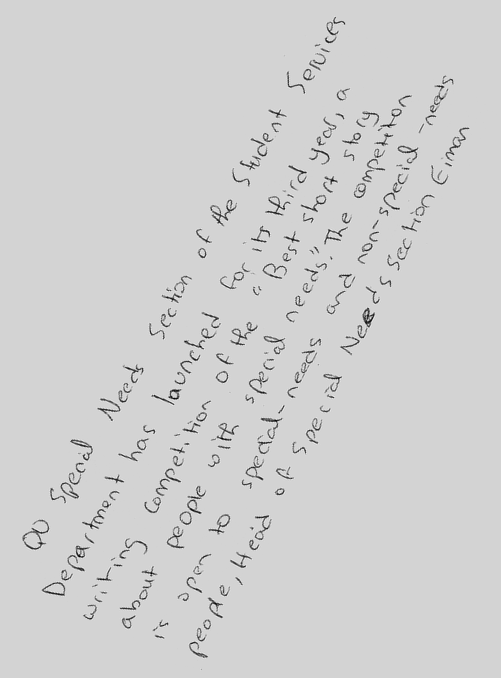 QU Special Needs Section of the Student Services
Department has launched for its third year, a
writing competition of the "Best short story
about people with special needs". The competition
is open to special-needs and non-special-needs
people, Head of Special Needs Section Eiman